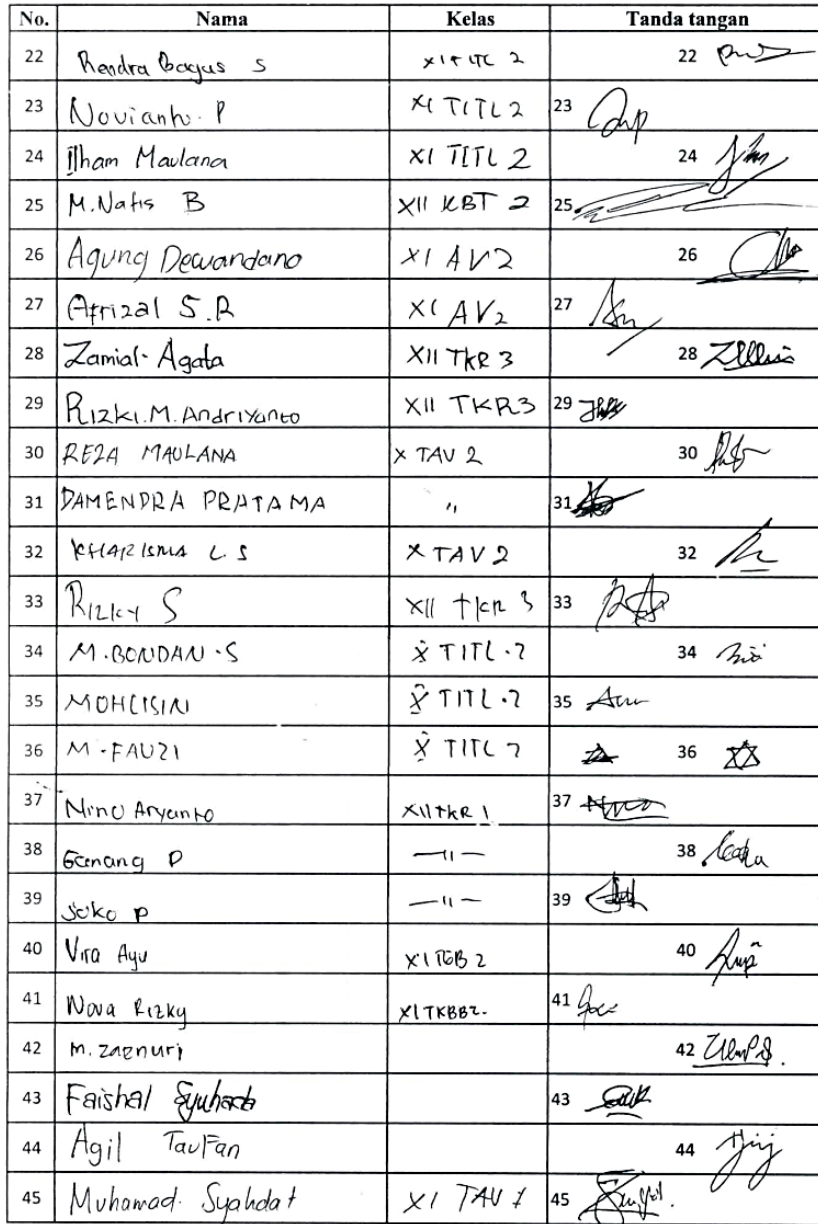 No. Nama Kelas Tanda tangan
22 Rendra Bagus S XI TITL 2 22
23 Novianto. P XI TITL 2 23
24 Ilham Maulana XI TITL 2 24
25 M. Nafis B XII KBT 2 25
26 Agung Dewandano XI AV 2 26
27 Afrizal S.R XI AV2 27
28 Zamial Agata XII TKR 3 28
29 Rizki.M.Andriyanto XII TKR3 29
30 REZA MAULANA X TAV 2 30
31 DAMENDRA PRATAMA " 31
32 KHARISMA L S X TAV 2 32
33 Rizky S XII TKR 3 33
34 M.BONDAN.S X TITL.2 34
35 X TITL.2 35
36 M-FAUZI X TITL 2 36
37 Nino Aryanto XII TKR 1 37
38 Ganang P —"— 38
39 Joko P —"— 39
40 Vira Ayu XI 2 40
41 Nova Rizky XI TKBB2. 41
42 M. Zaenuri 42
43 Faishal Syuhada 43
44 Agil Taufan 44
45 Muhamad. Syahdat XI TAV 1 45